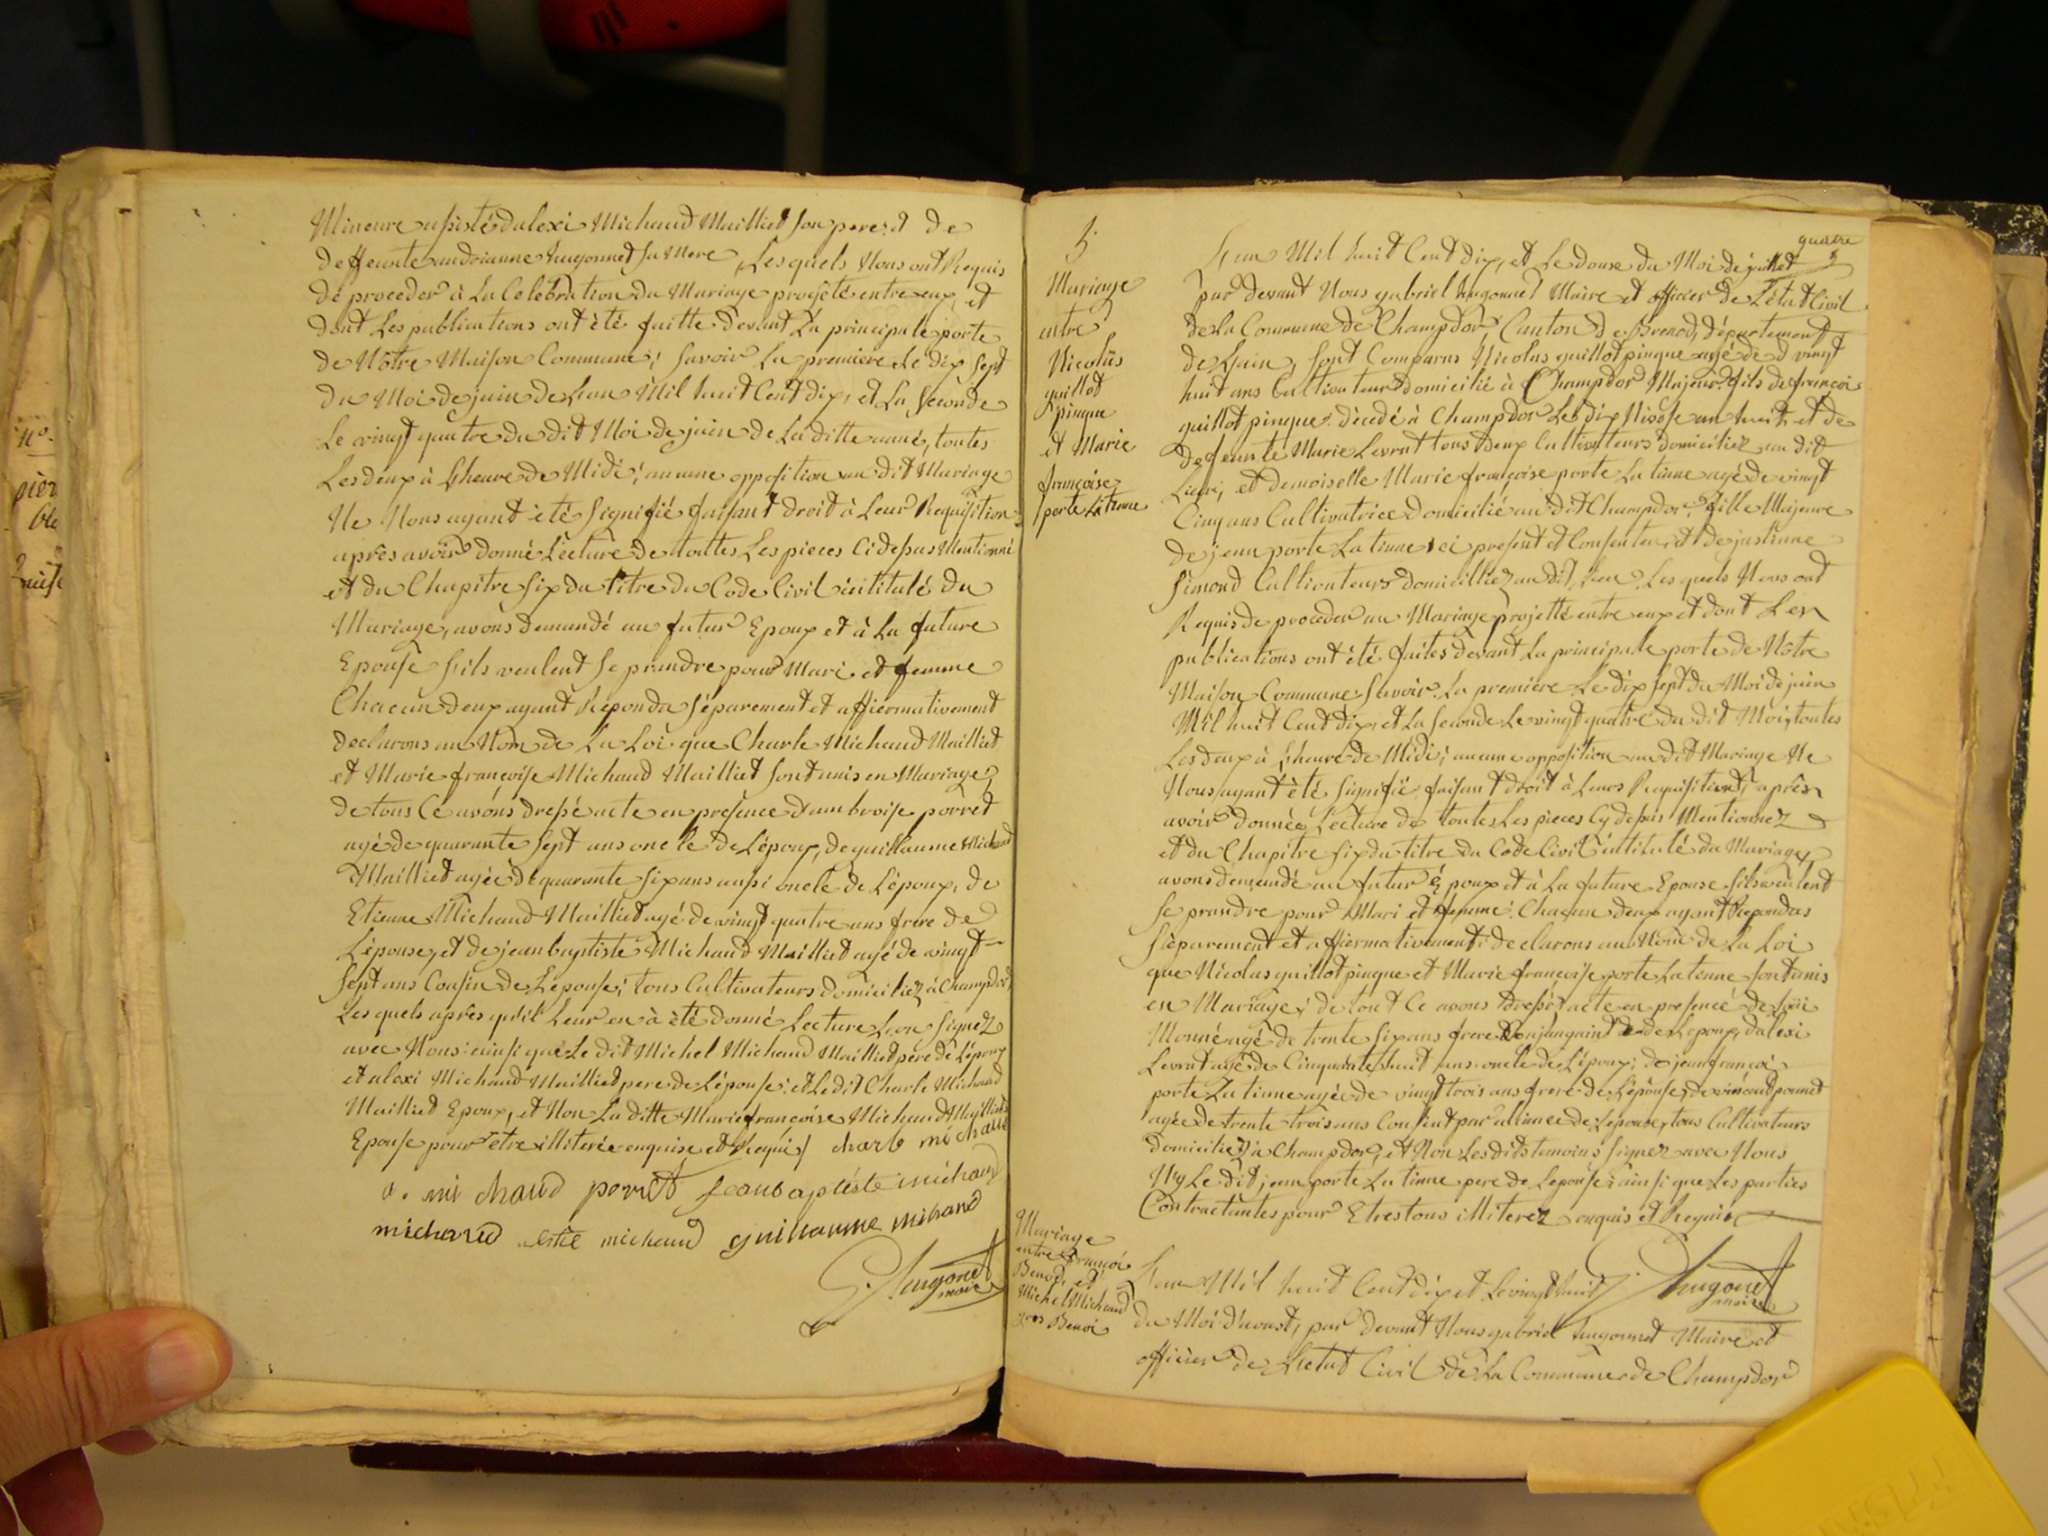 Mineure assisté dalexi Michaud Mailliet son pere et de
deffeunte andrianne hugonnet sa Mere, Les quels Nous ont Requis
de proceder à La Celebration du Mariage projeté entre eux, et
dont Les publications ont été faitte devant La principale porte
de Nôtre Maison Commune; savoir La premiere Le dix sept
du Moi de juin de Lean Mil huit Cent dix, et La seconde
Le vingt quatre du dit Moi de juin de La ditte anné, toutes
Les deux à L'heure de Midi; aucune opposition au dit Mariage
Ne Nous ayant été signifié faisant droit à Leur Requisition;
après avoir donné Lecture de toutes Les pieces Ci dessus Mentionné
et du Chapitre six du titre du Code Civil intitulé du
Mariage, avons demandé au futur Epoux et à La future
Epouse s'ils veulent se prandre pour Mari et femme
Chacun deux ayant Repondu séparement et affiermativement
declarons au Nom de La Loi que Charle Michaud Mailliet
et Marie françoise Michaud Mailliet sont unis en Mariage;
de tous Ce avons dressé acte en presence d'ambroise porret
agé de quarante sept ans oncle de L'époux, de guillaume Michaud
Mailliet agée de quarante six ans aussi oncle de L'époux, de
Etienne Michaud Mailliet agé de vingt quatre ans frere de
L'épouse, et de jean baptiste Michaud Mailliet agé de vingt
sept ans Cousin de L'epouse; tous Cultivateurs domiciliez à Champdor,
Les quels après qu'il Leur en à été donné Lecture L'on signez
avec Nous; ainsi que Le dit Michel Michaud Mailliet pere de L'époux
et alexi Michaud Mailliet pere de L'épouse; et Le dit Charle Michaud
Mailliet Epoux, et Non La ditte Marie françoise Michaud Mailliet
Epouse pour être illiterée enquise et Requis/ charle michaud
a. mi chaud porret jean baptéste michaud
michaud michaud guillaume mihaud
G. hugonet
maire
5.
Mariage
entre
Nicolas
guillot
pinque
et Marie
françoise
porte La tinne
quatre
L'an Mil huit Cent dix, et Le douse du Moi de juillet
par devant Nous gabriel hugonnet Maire et officier de L'état Civil
de La Commune de Champdor, Canton de Brenod, departement
de L'ain, sont Comparus Nicolas guillot pinque agé de vingt
huit ans Cultivateur domicilié à Champdor Majeur, fils de françoi
guillot pinque décédé à Champdor Le dix Nivose an huit, et de
defeunte Marie Levrat tous deux Cultivateurs domiciliez au dit
Lieu; et demoiselle Marie françoise porte La tinne agé de vingt
Cinq ans Cultivatrice domicilié au dit Champdor, fille Majeure
de jean porte La tinne ici present et Consentent, et de justinne
simond Cultivateurs domicilliez au dit Lieu. Les quels Nous ont
Requis de proceder au Mariage projetté entre eux et dont Les
publications ont été faites devant La principale porte de Nôtre
Maison Commune savoir La premiere Le dix sept du Moi de juin
Mil huit Cent dix, et La seconde Le vingt quatre du dit Moi, toutes
Les deux à L'heure de Midi; aucune opposition au dit Mariage Ne
Nous ayant été signifié faisant droit à Leurs Requisition, après
avoir donnée Lecture de toutes Les pieces Cy dessus Mentionnez
et du Chapitre six du titre du Code Civil intitulé du Mariage,
avons demandé au futur époux et à La future Epouse s'ils veulent
se prandre pour Mari et femme; Chacun deux ayant Repondus
séparement et affiermativement; declarons au Nom de La Loi
que Nicolas guillot pinque et Marie françoise porte La tinne sont unis
en Mariage; de tout Ce avons dressé acte en presence de
Monné agé de trente six ans frere de L'epoux, dalexi
Levrat agé de Cinquante huit ans oncle de L'époux; de jean françoi
porte La tinne agée de vingt trois ans frere de L'épouse,
agée de trente trois ans par alliance de L'epouse, tous Cultivateurs
domiciliez à Champdor, et Non Les dits temoins signez avec Nous
Ny Le dit jean porte La tinne pere de L'epouse; ainsi que Les parties
Contractantes pour Etres tous illiterez enquis et Requis
hugonet
maire
Mariage
entre françoi
Benod et
Michel Michaud
L'an Mil huit Cent dix et Le vingt huit
du Moi d'avoust, par devant Nous gabriel hugonnet Maire et
officier de L'etat Civil de La Commune de Champdor